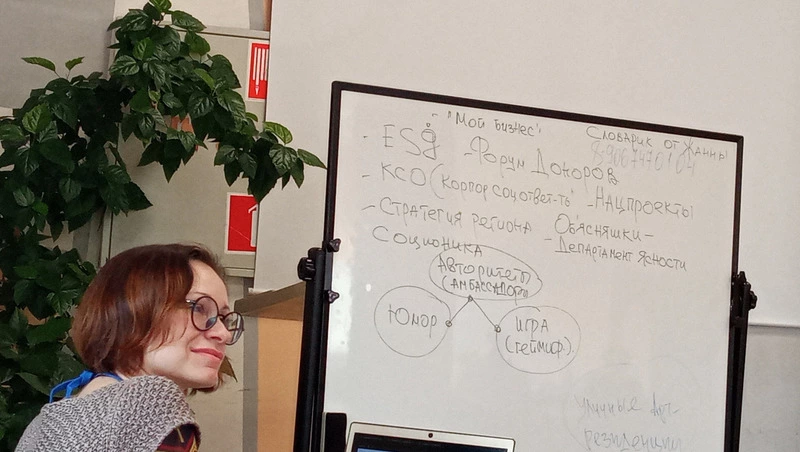 - "Мой бизнес"
Словарик от Жанны
- ESg
- Форум Доноров
- КСО (Корпор соц ответ-ть
- Нацпроекты
- Стратегия региона
Объясняшки -
Соционика
- Департамент Ясности
Авторитеты
(Амбассадоры)
Юмор
Игра
(геймиф.)
Уличные Арт-
резиденции